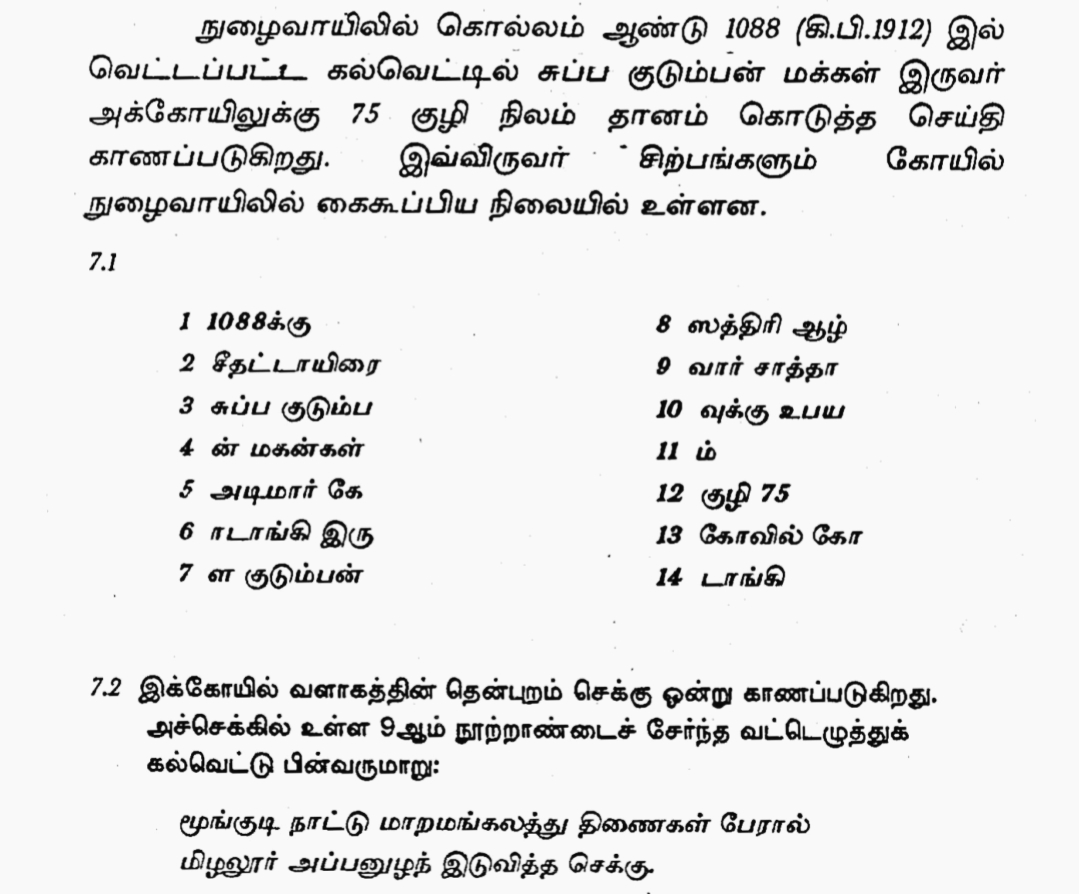 நுழைவாயிலில் கொல்லம் ஆண்டு 1088 (கி.பி.1912) இல்
வெட்டப்பட்ட கல்வெட்டில் சுப்ப குடும்பன் மக்கள் இருவர்
அக்கோயிலுக்கு 75 குழி நிலம் தானம் கொடுத்த செய்தி
காணப்படுகிறது. இவ்விருவர் சிற்பங்களும் கோயில்
நுழைவாயிலில் கைகூப்பிய நிலையில் உள்ளன.
7.1
1 1088க்கு
2 சீதட்டாயிரை
3 சுப்ப குடும்ப
4 ன் மகன்கள்
5 அடிமார் கே
6 ாடாங்கி இரு
7 ள குடும்பன்
8 ஸத்திரி ஆழ்
9 வார் சாத்தா
10 வுக்கு உபய
11 ம்
12 குழி 75
13 கோவில் கோ
14 டாங்கி
7.2 இக்கோயில் வளாகத்தின் தென்புறம் செக்கு ஒன்று காணப்படுகிறது.
அச்செக்கில் உள்ள 9ஆம் நூற்றாண்டைச் சேர்ந்த வட்டெழுத்துக்
கல்வெட்டு பின்வருமாறு:
மூங்குடி நாட்டு மாறமங்கலத்து திணைகள் பேரால்
மிழலூர் அப்பனுழந் இடுவித்த செக்கு.